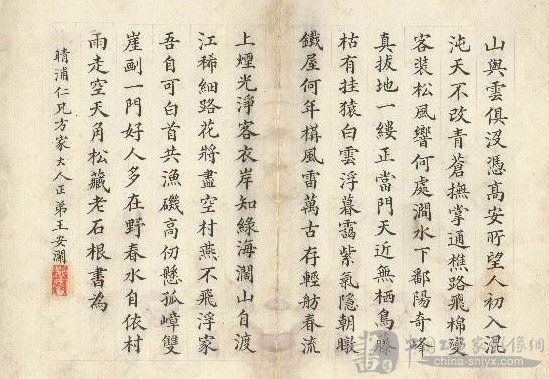 山與雲俱沒憑高安所望人初入混
沌天不改青蒼撫掌通樵路飛棉變
客裝松風響何處澗水下鄱陽奇峰
真拔地一縷正當門天近無栖鳥藤
枯有挂猿白雲浮暮靄紫氣隱朝暾
鐵屋何年構風雷萬古存輕舫春流
上煙光淨客衣岸知綠海濶山自渡
江稀細路花將盡空村燕不飛浮家
吾自可白首共漁磯高仞懸孤嶂雙
崖劃一門好人多在野春水自依村
雨走空天角松藏老石根書為
晴浦仁兄方家大人正弟王安瀾
china-shjyx.com